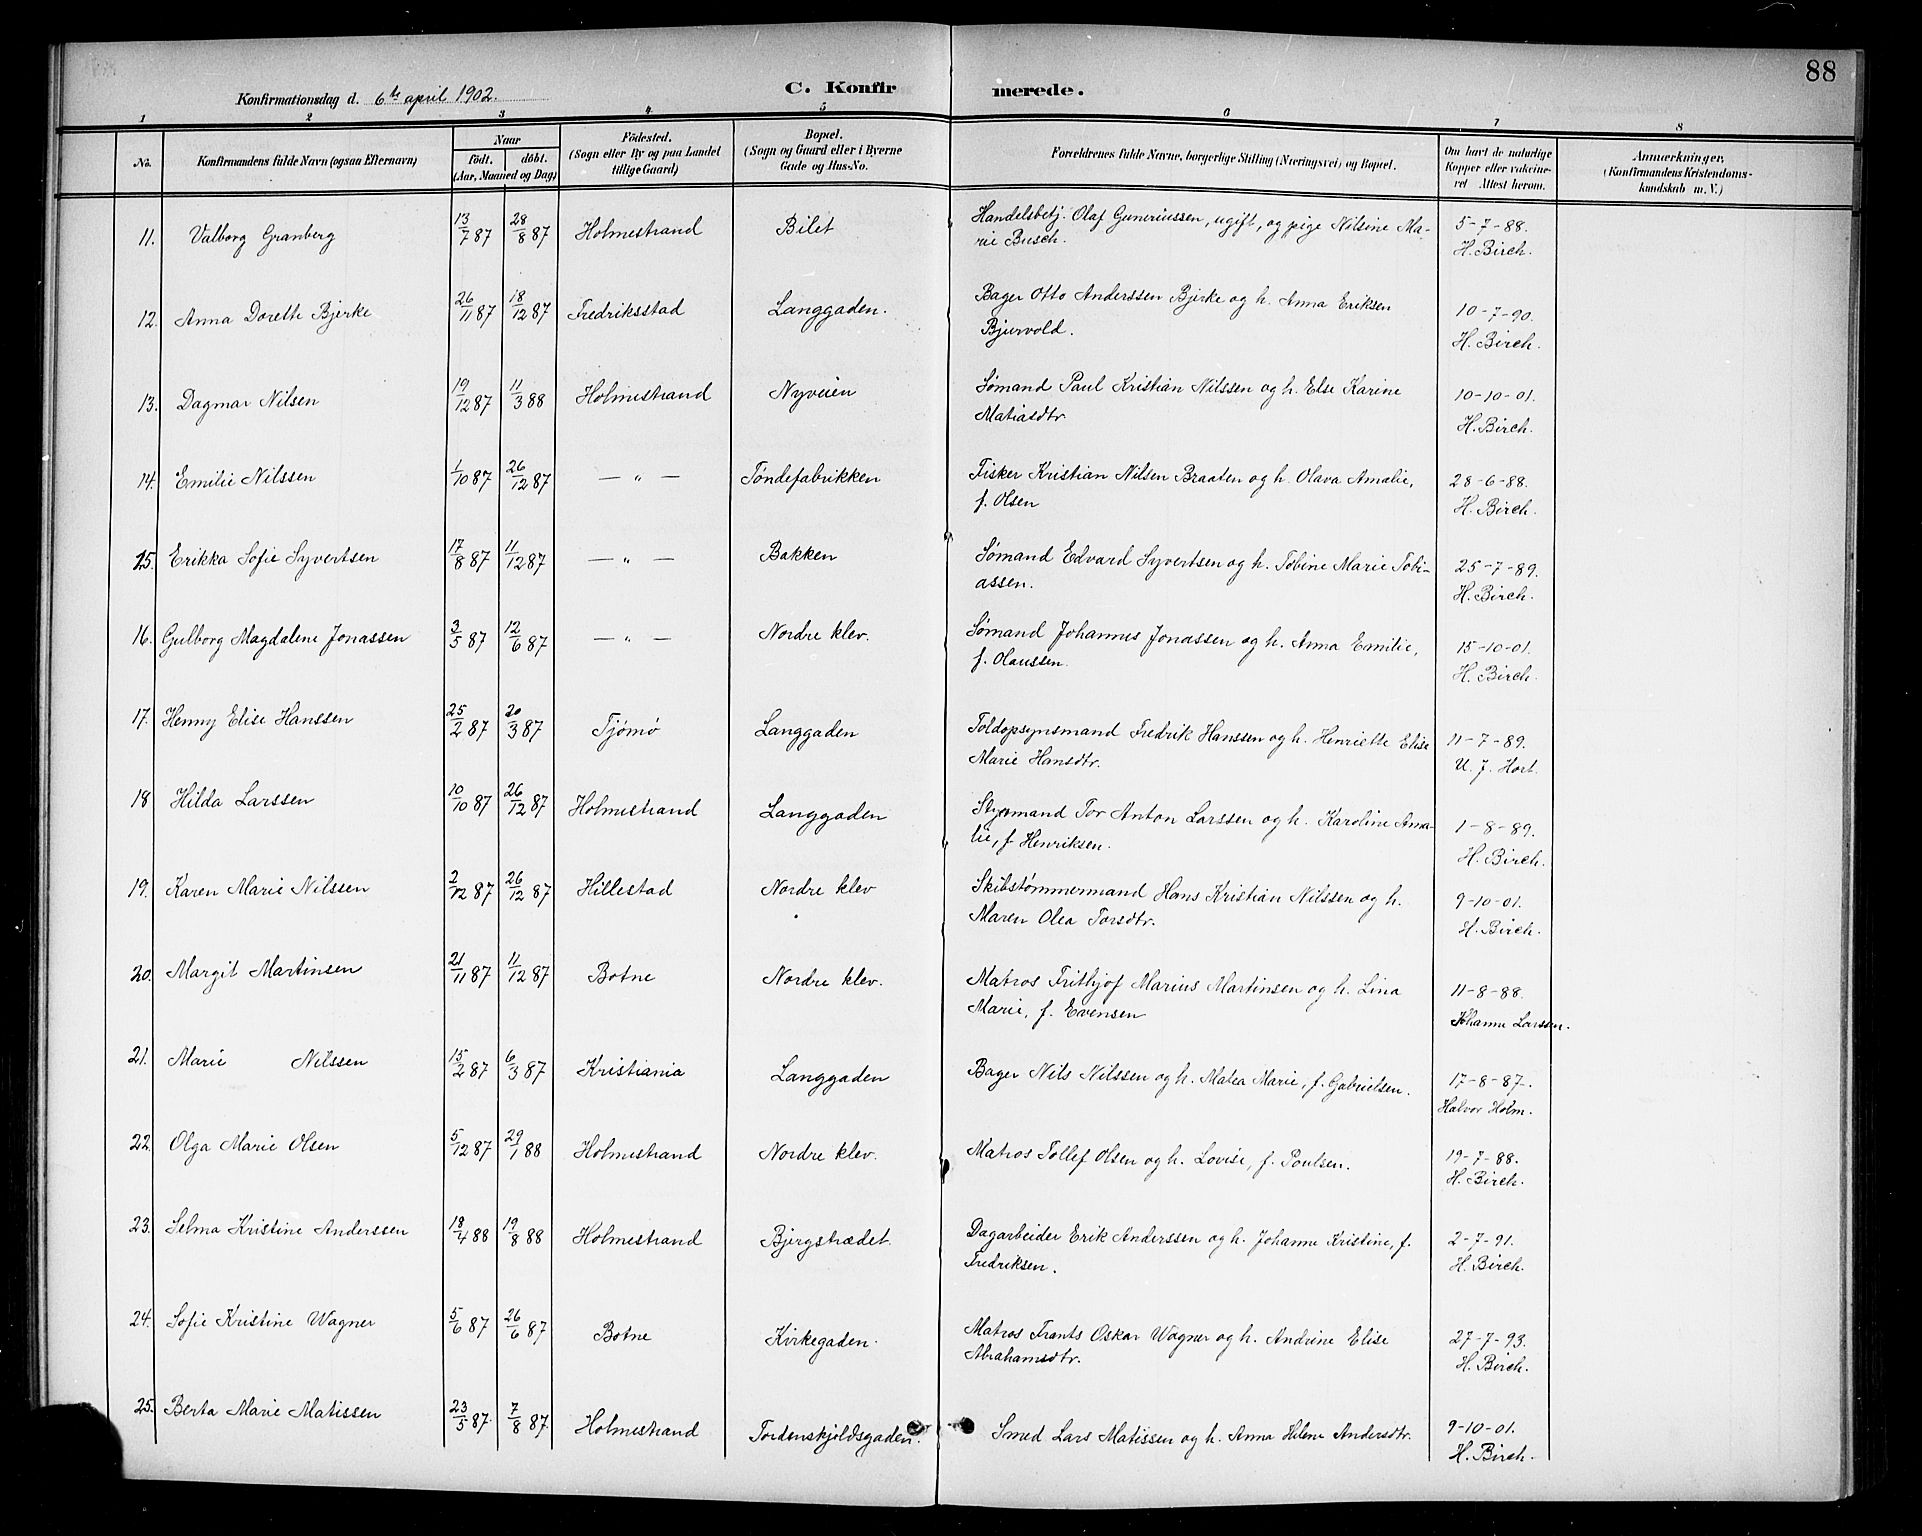 88
Konfirmationsdag d. 6te april 1902.
C. Konfirmerede.
1 2 3 4 5 6 7 8
No.
Konfirmandens fulde Navn (ogsaa Efternavn)
Naar
födt. döbt.
(Aar, Maaned og Dag)
Födested.
(Sogn eller By og paa Landet
tillige Gaard)
Bopæl.
(Sogn og Gaard eller i Byerne
Gade og Hus-No.
Forældrenes fulde Navne, borgerlige Stilling (Næringsvei) og Bopæl.
Om havt de naturlige
Kopper eller vakcine-
ret Attest herom.
Anmærkninger,
(Konfirmandens Kristendoms-
kundskab m. V.)
11. Valborg Granberg 13/7 87 28/8 87 Holmestrand Bilet Handelsbetj. Olaf Guneriussen, ugift, og pige Nilsine Ma-
rie Busch. 5-7-88. H. Birch.
12. Anna Dorette Bjerke 26/11 87 18/12 87 Fredriksstad Langgaden. Bager Otto Anderssen Bjerke og h. Anna Eriksen
Bjurvold. 10-7-90. H. Birch.
13. Dagmar Nilsen 19/12 87 11/3 88 Holmestrand Nyveien Sømand Paul Kristian Nilssen og h. Else Karine
Matiasdtr 10-10-01. H. Birch.
14. Emilie Nilssen 1/10 87 26/12 87 — „ — Tøndefabrikken Fisker Kristian Nilsen Braaten og h. Olava Amalie,
f. Olsen 28-6-88. H. Birch.
15. Erikka Sofie Syvertsen 17/8 87 11/12 87 — „ — Bakken Sømand Edvard Syvertsen og h. Tobine Marie Tobi-
assen. 25-7-89. H. Birch.
16. Gulborg Magdalene Jonassen 3/5 87 12/6 87 — „ — Nordre klev. Sømand Johannes Jonassen og h. Anna Emilie,
f. Olaussen. 15-10-01. H. Birch.
17. Henny Elise Hanssen 25/2 87 20/3 87 Tjømø Langgaden Toldopsynsmand Fredrik Hanssen og h. Henriette Elise
Marie Hansdtr. 11-7-89. U. J. Hort.
18 Hilda Larssen 10/10 87 26/12 87 Holmestrand Langgaden Styrmand Tor Anton Larssen og h. Karoline Ama-
lie, f. Henriksen. 1-8-89. H. Birch.
19. Karen Marie Nilssen 2/12 87 26/12 87 Hillestad Nordre klev Skibstømmermand Hans Kristian Nilssen og h.
Maren Olea Torsdtr. 9-10-01. H. Birch.
20. Margit Martinsen 21/11 87 11/12 87 Botne Nordre klev. Matros Frithjof Marius Martinsen og h. Lina
Marie, f. Evensen 11-8-88. Johanne Larssen.
21. Marie Nilssen 15/2 87 6/3 87 Kristiania Langgaden Bager Nils Nilssen og h. Matea Marie, f. Gabrielsen. 17-8-87. Halvor Holm.
22. Olga Marie Olsen 5/12 87 29/1 88 Holmestrand Nordre klev. Matros Tollef Olsen og h. Lovise, f. Poulsen. 19-7-88. H. Birch.
23. Selma Kristine Anderssen 18/4 88 19/8 88 Holmestrand Bjergstrædet. Dagarbeider Erik Anderssen og h. Johanne Kristine, f.
Fredriksen. 2-7-91. H. Birch.
24. Sofie Kristine Wagner 5/6 87 26/6 87 Botne Kirkegaden. Matros Frants Oskar Wagner og h. Andrine Elise
Abrahamsdtr. 27-7-93. H. Birch.
25. Berta Marie Matissen 23/5 87. 7/8 87. Holmestrand Tordenskjoldsgaden. Smed Lars Matissen og h. Anna Helene Andersdtr. 9-10-01. H. Birch.